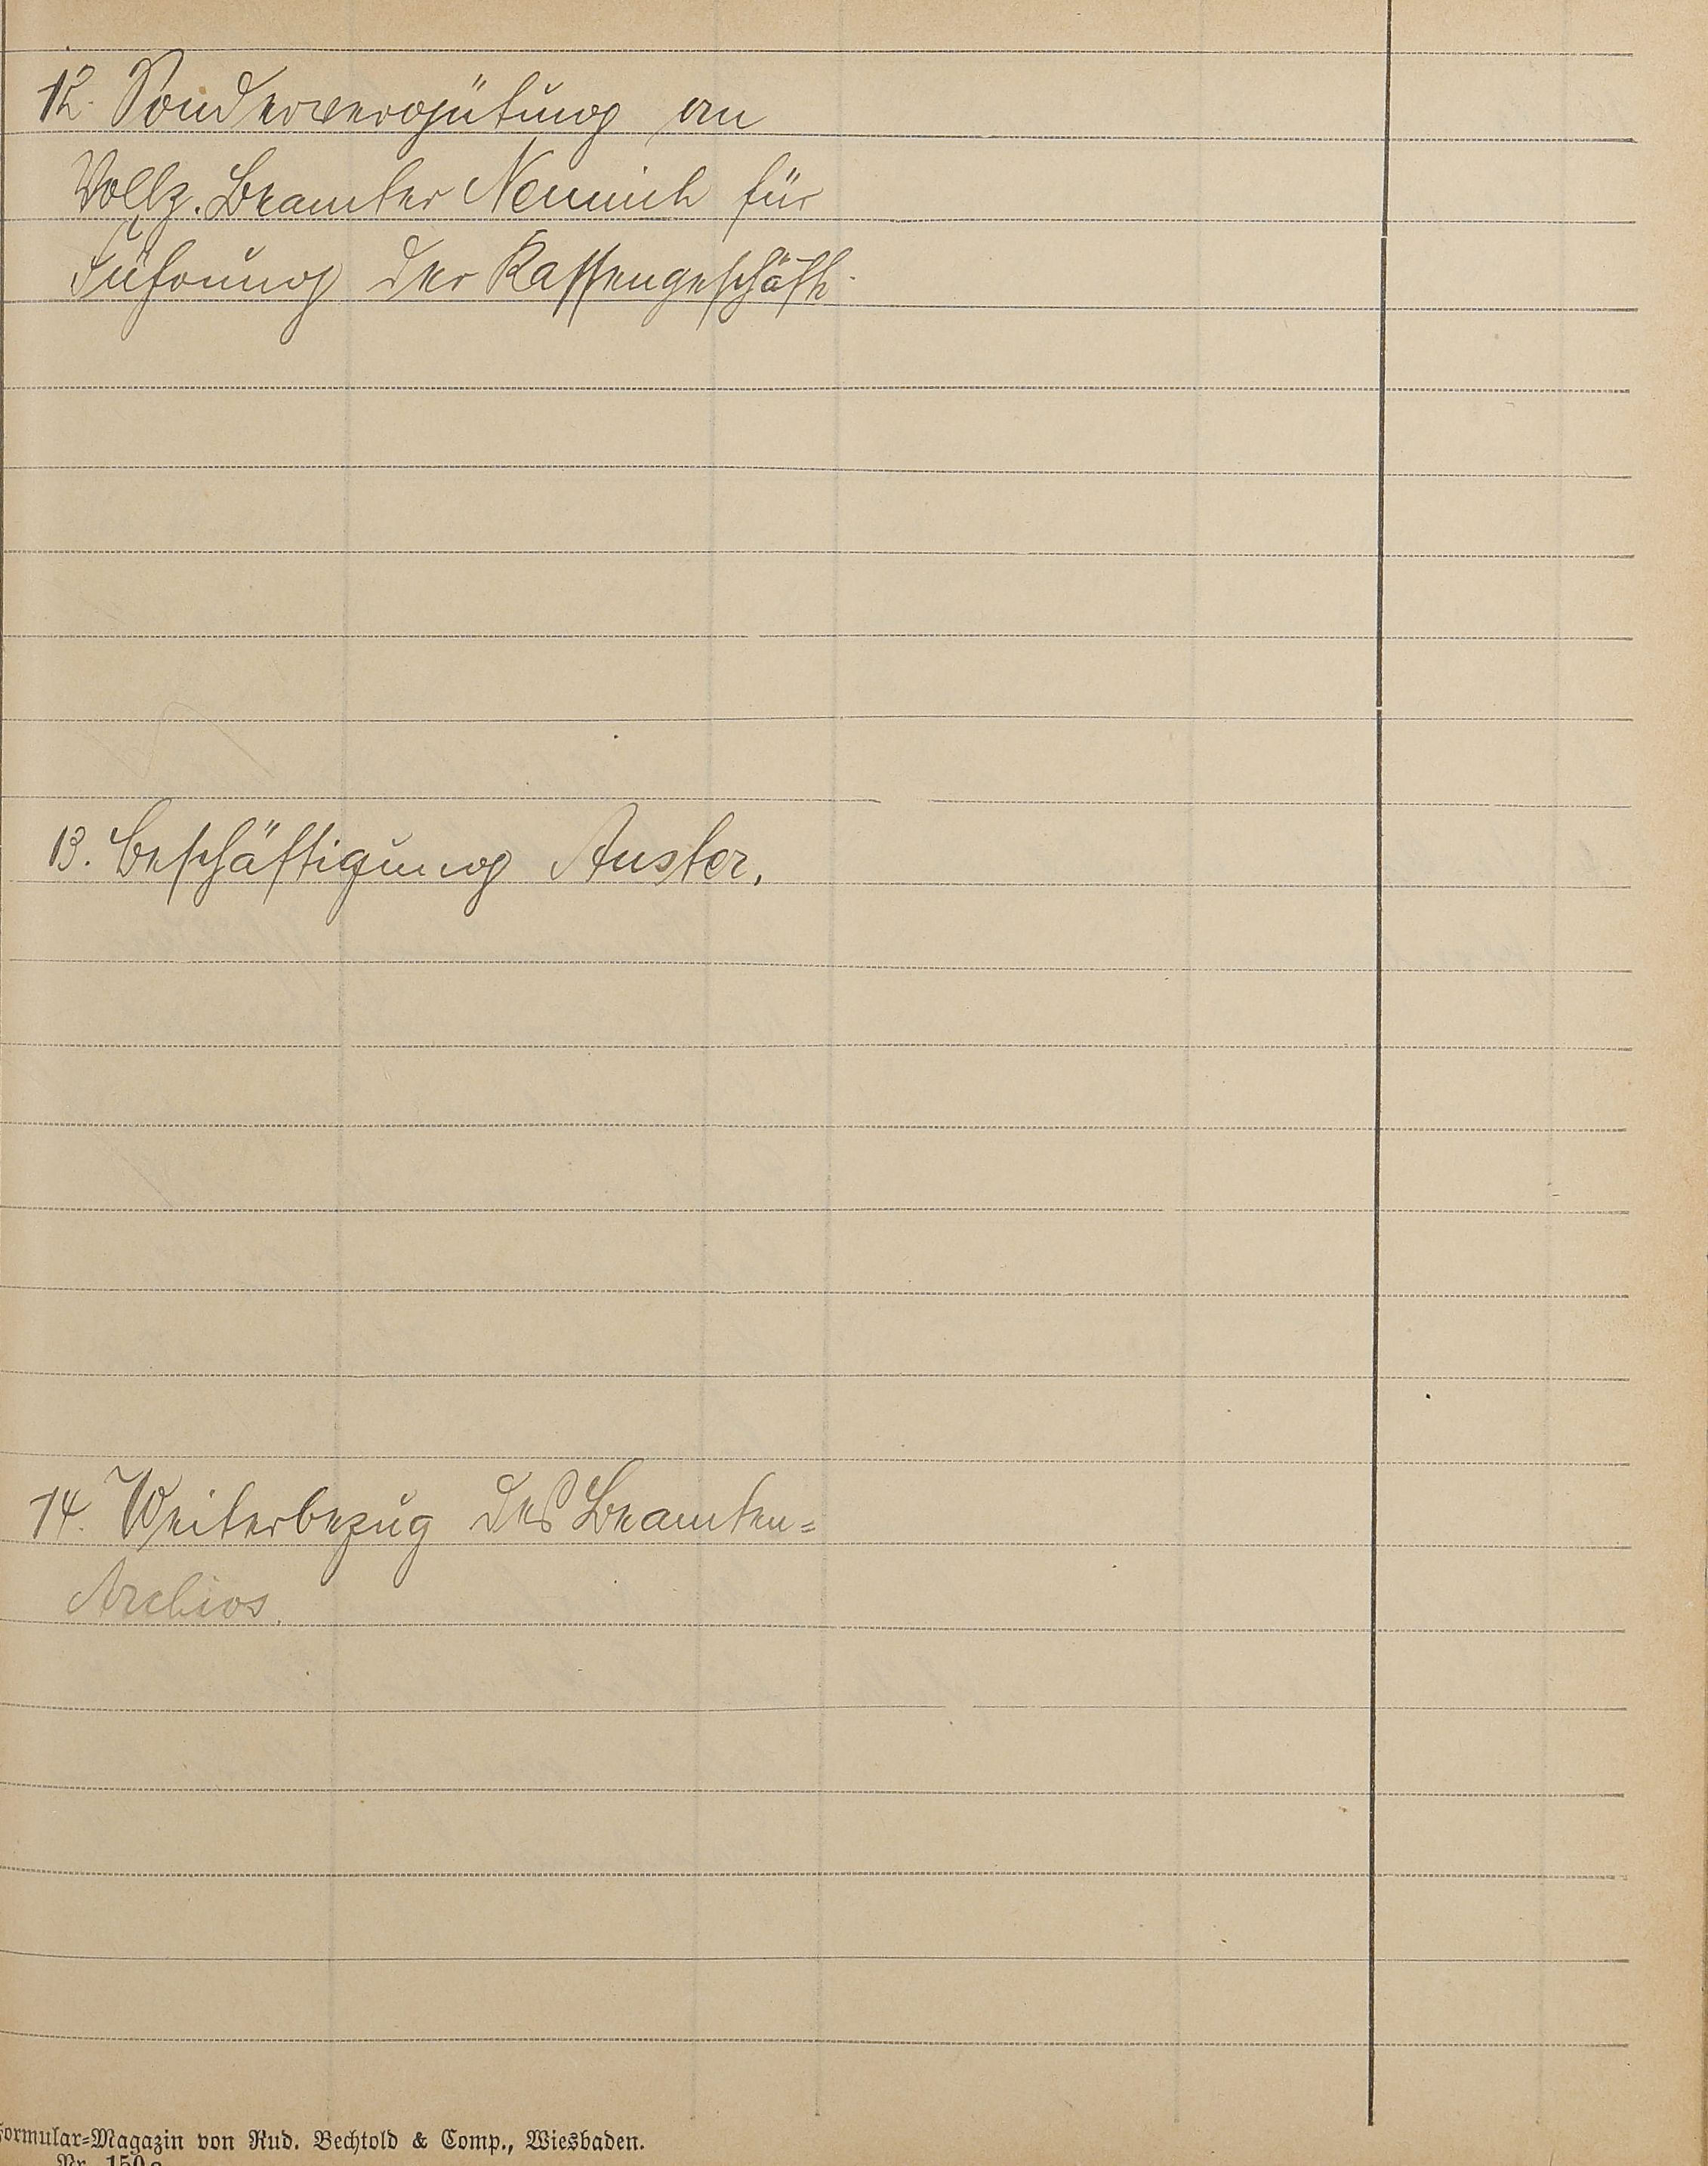 12. Sondervergütung an
Vollz. Beamter Nennich für
Führung der Kassengeschäfte.
13. Beschäftigung Auster.
14. Weiterbezug des Beamten=
Archivs.
Formular=Magazin von Rud. Bechtold & Comp., Wiesbaden.
Nr. 150a